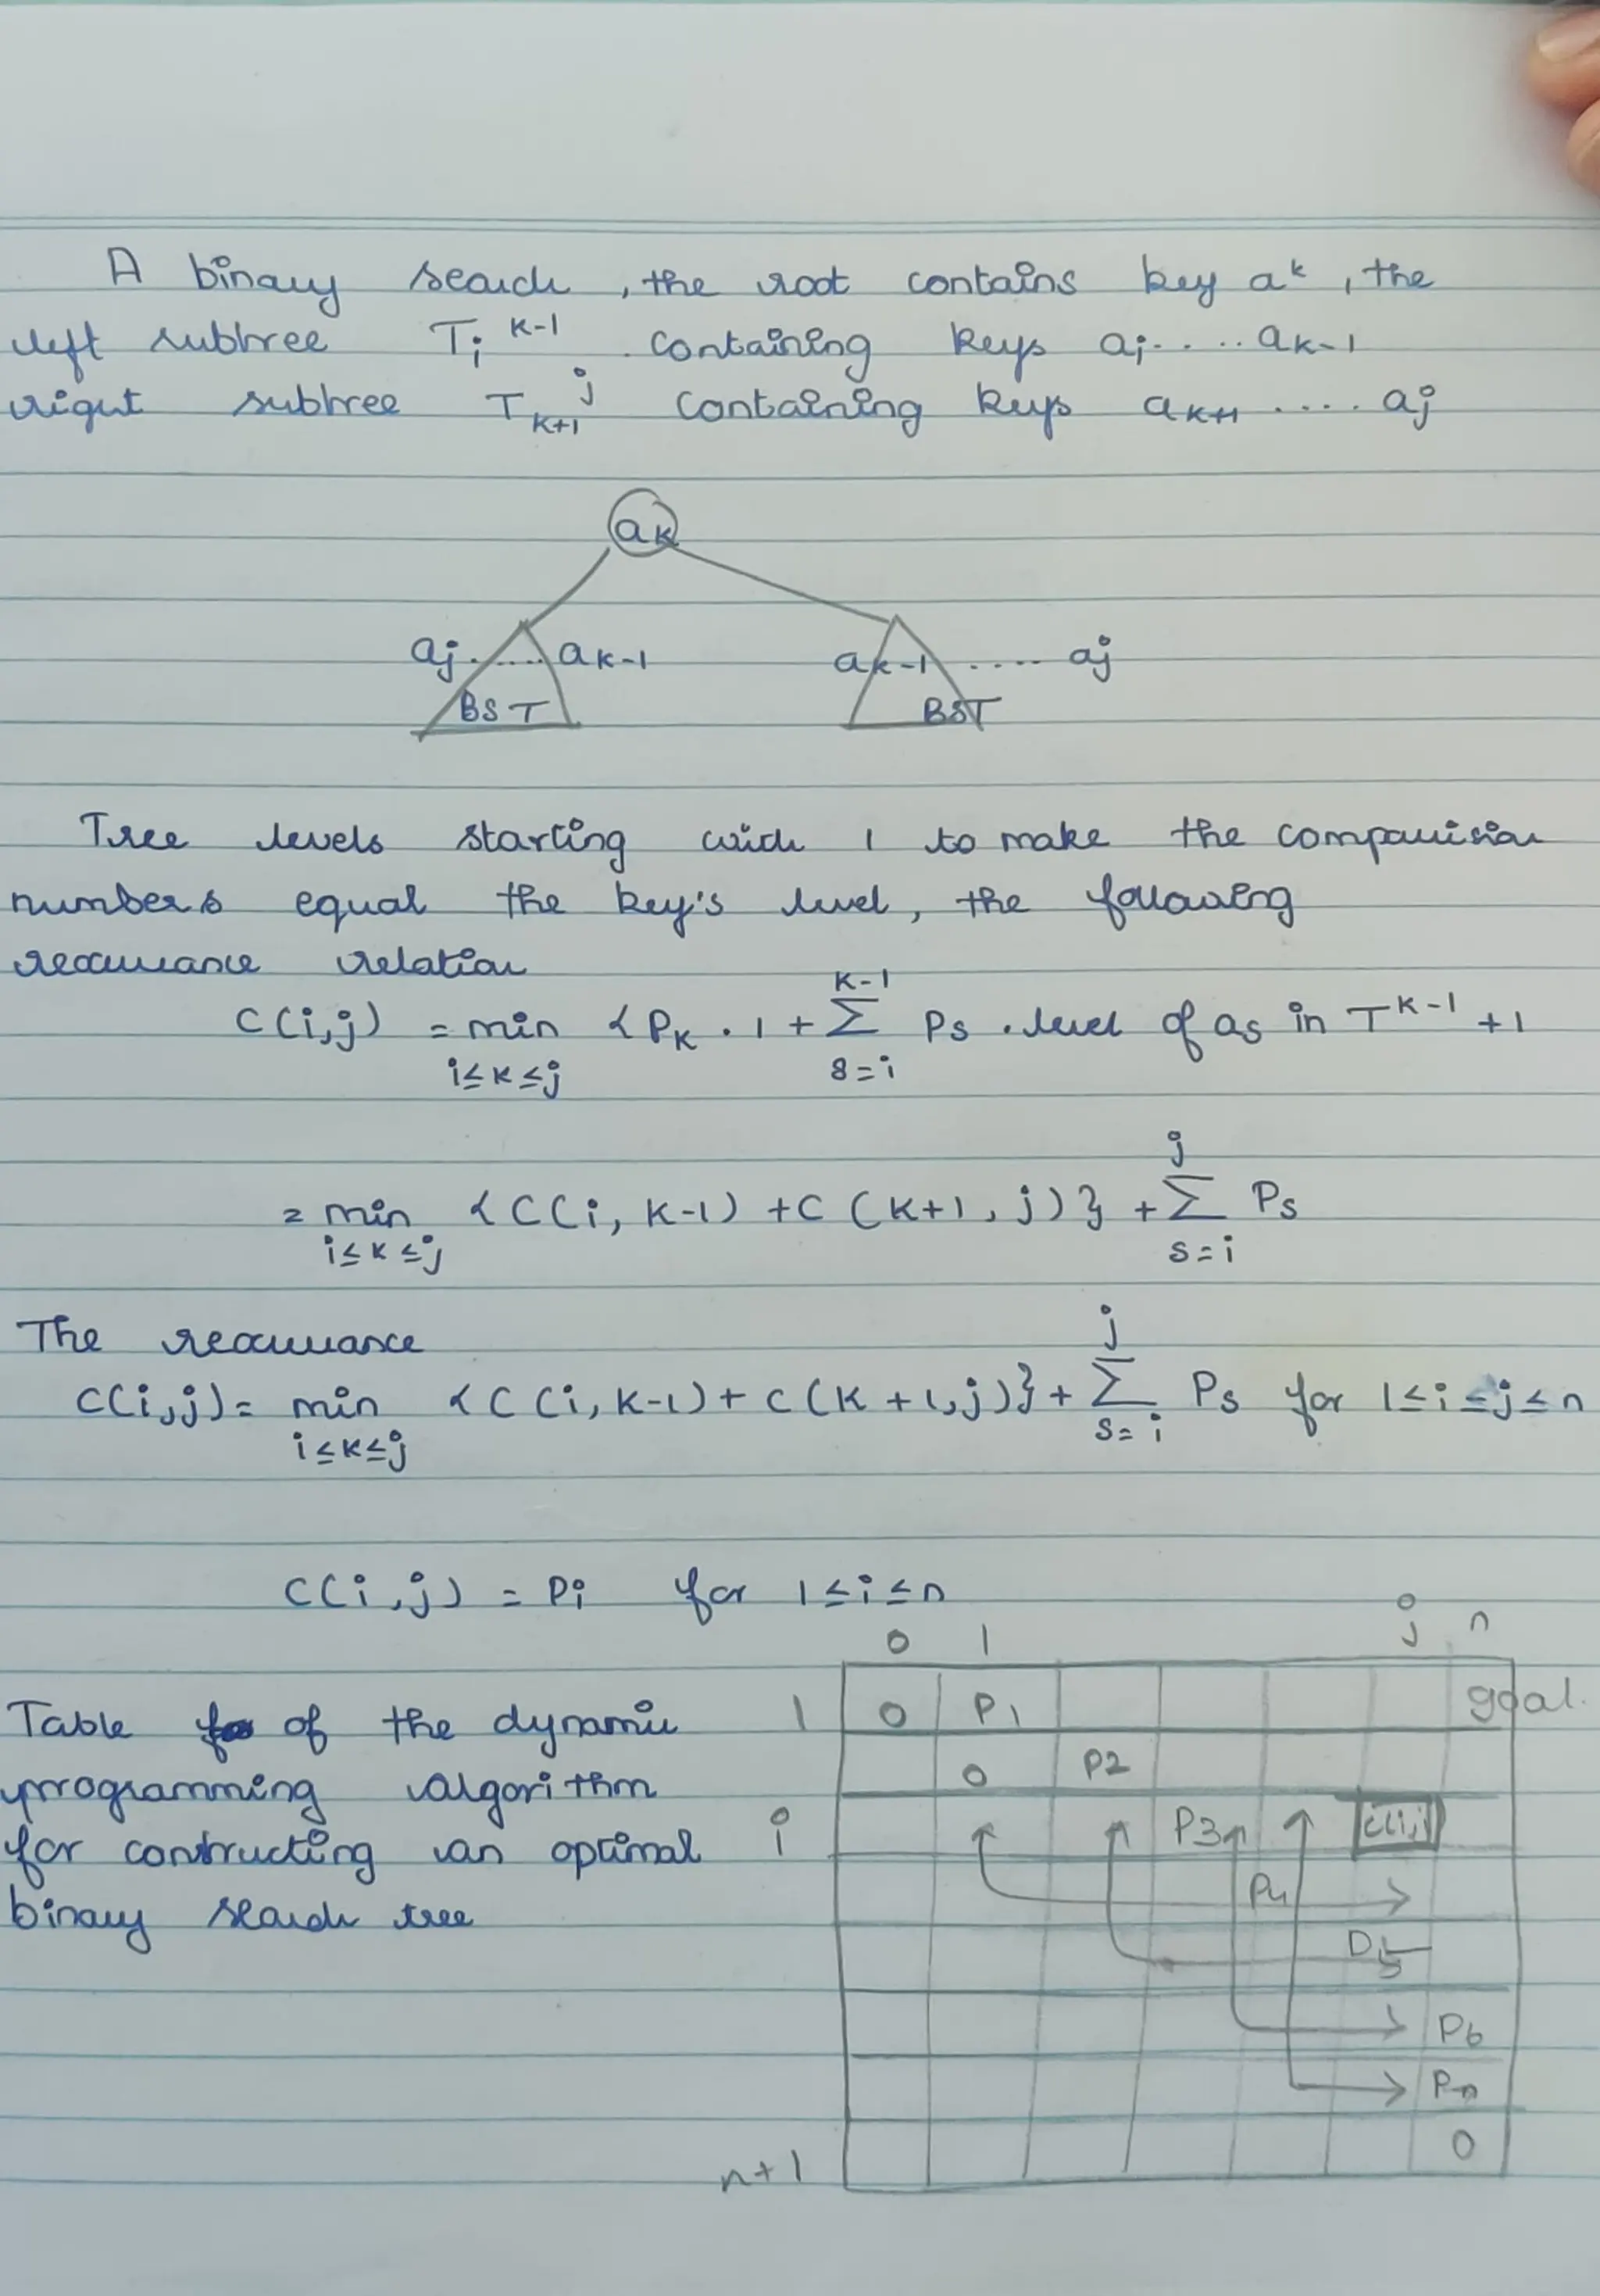 A binary search , the root contains key a^k , the
left subtree T_i^{k-1} containing keys a_i.....a_{k-1}
right subtree T_{k+1}^j containing keys a_{k+1} .... a_j
a_k
a_j......a_{k-1} a_{k-1}..... a_j
BST BST
Tree levels starting with 1 to make the comparision
numbers equal the key's level, the following
recurrance relation
C(i,j) = min_{i≤k≤j} {P_k . 1 + Σ_{s=i}^{k-1} P_s . level of a_s in T^{k-1} + 1
= min_{i≤k≤j} {C(i, k-1) + C(k+1, j)} + Σ_{s=i}^{j} P_s
The recurrance
C(i,j) = min_{i≤k≤j} {C(i, k-1) + C(k+1,j)} + Σ_{s=i}^{j} P_s for 1≤i≤j≤n
C(i,j) = P_i for 1≤i≤n
0 1 j n
Table of the dynamic
programming algorithm
for constructing an optimal
binary search tree
1 0 P1 goal.
0 P2
i P3 C(i,j)
P4
P6
Pn
0
n+1